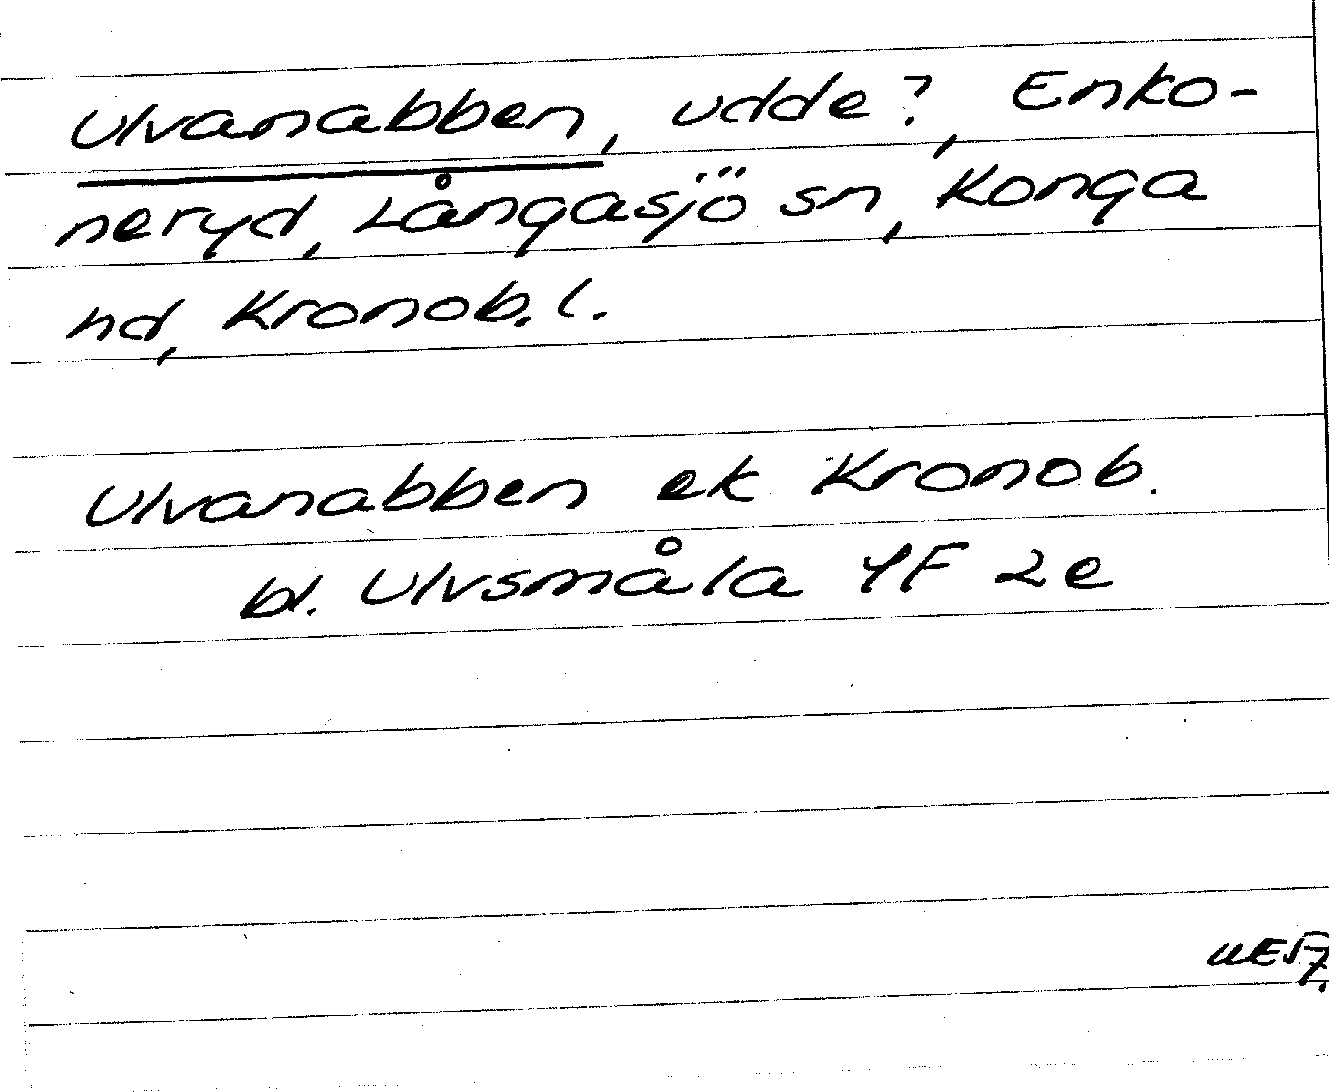 Ulvanabben, udde?, Enko-
neryd, Långasjö sn, Konga
hd, Kronob. l.
Ulvanabben ek Kronob.
bl. Ulvsmåla 4F 2e